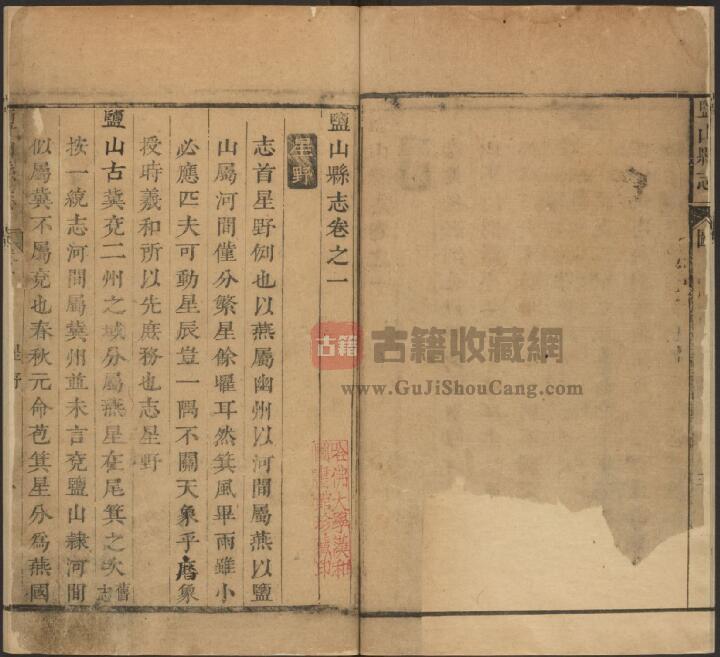 鹽山縣志卷之一
星野
志首星野例也以燕屬幽州以河間屬燕以鹽
山屬河間僅分繁星餘曜耳然箕風畢雨雖小
必應匹夫可動星辰豈一隅不關天象乎曆象
授時羲和所以先庶務也志星野
鹽山古冀兗二州之域分屬燕星在尾箕之次舊志
按一統志河間屬冀州並未言兗鹽山隸河間
似屬冀不屬兗也春秋元命苞箕星分爲燕國
星野
鹽山縣志
古籍
古籍收藏網
www.GuJiShouCang.com
哈佛大學漢和
圖書館珍藏印